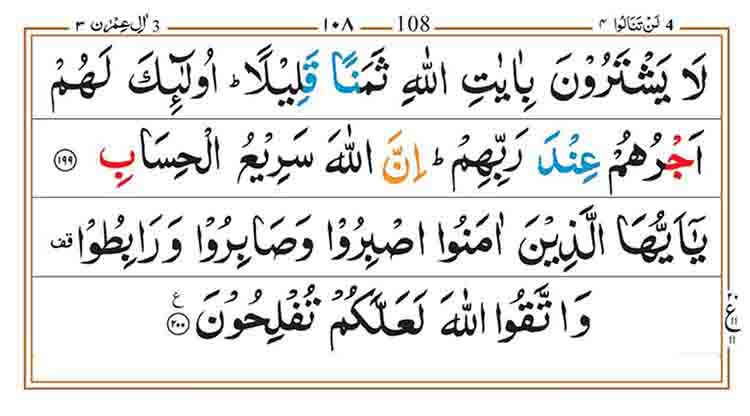 4 لَنْ تَنَالُوا ۴ 108 ۱۰۸ 3 اٰلِ عِمْرٰن ۳
لَا يَشْتَرُوْنَ بِاٰيٰتِ اللّٰهِ ثَمَنًا قَلِيْلًا ؕ اُولٰٓئِكَ لَهُمْ
اَجْرُهُمْ عِنْدَ رَبِّهِمْ ؕ اِنَّ اللّٰهَ سَرِيْعُ الْحِسَابِ ۱۹۹
يٰۤاَيُّهَا الَّذِيْنَ اٰمَنُوا اصْبِرُوْا وَصَابِرُوْا وَرَابِطُوْا قف
وَاتَّقُوا اللّٰهَ لَعَلَّكُمْ تُفْلِحُوْنَ ۲۰۰ ع
۲۰
ع
۱۱
۱۱